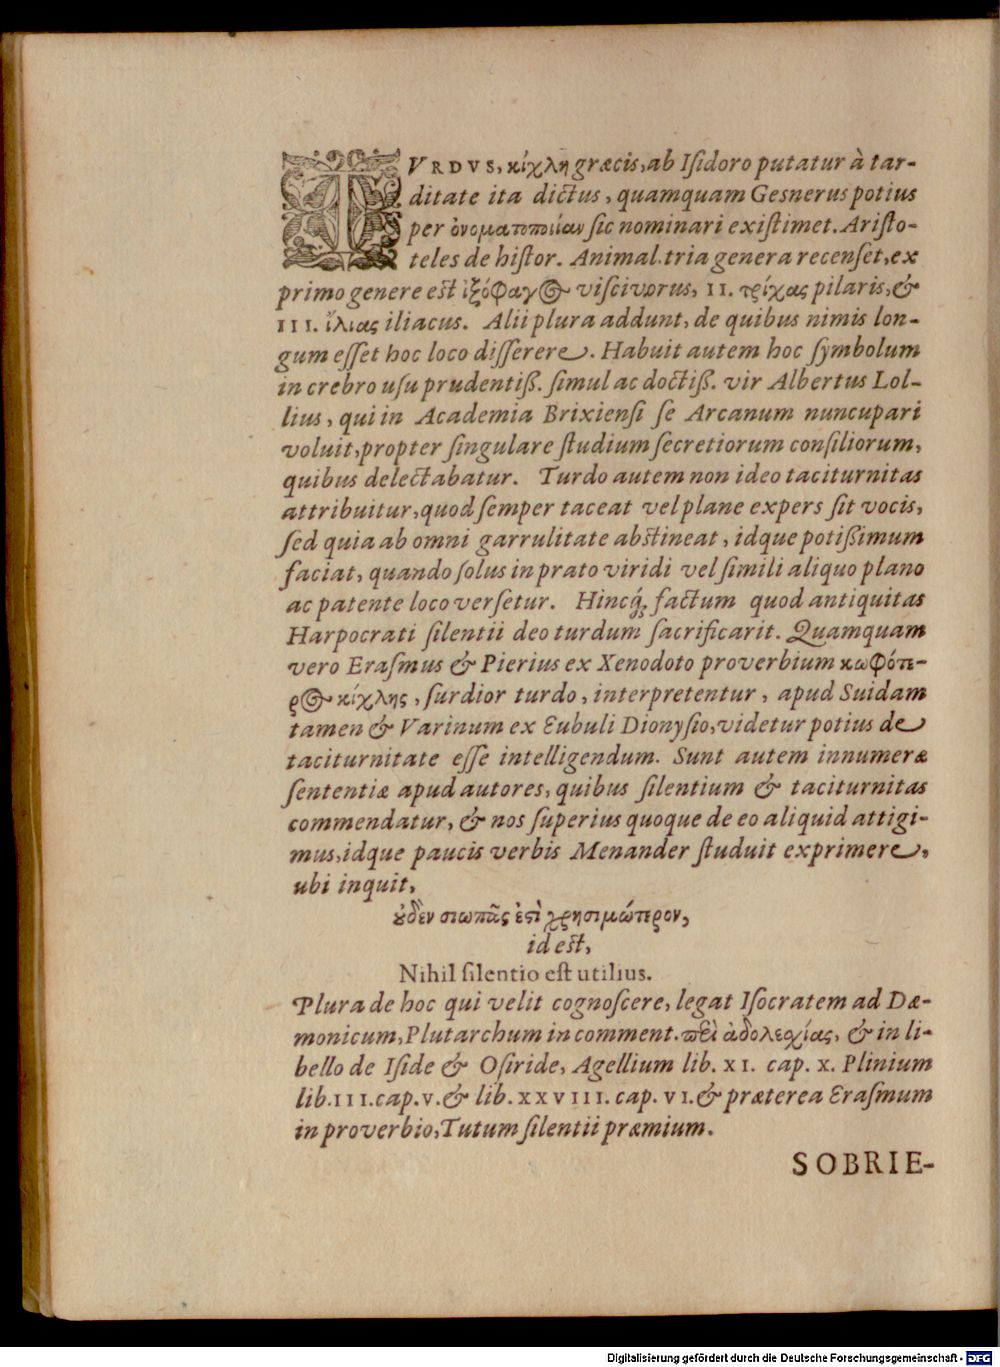 TVRDVS, κίχλη græcis, ab Iſidoro putatur à tar-
ditate ita dictus, quamquam Gesnerus potius
per ὀνοματοποιίαν ſic nominari exiſtimet. Ariſto-
teles de hiſtor. Animal. tria genera recenſet, ex
primo genere est ἰξόφαγος viſcivorus, II. τρίχας pilaris, &
III. ἴλιας iliacus. Alii plura addunt, de quibus nimis lon-
gum eſſet hoc loco diſſerere. Habuit autem hoc ſymbolum
in crebro uſu prudentiß. ſimul ac doctiß. vir Albertus Lol-
lius, qui in Academia Brixienſi ſe Arcanum nuncupari
voluit, propter ſingulare ſtudium ſecretiorum conſiliorum,
quibus delectabatur. Turdo autem non ideo taciturnitas
attribuitur, quod ſemper taceat vel plane expers ſit vocis,
ſed quia ab omni garrulitate abstineat, idque potißimum
faciat, quando ſolus in prato viridi vel ſimili aliquo plano
ac patente loco verſetur. Hincq́; factum quod antiquitas
Harpocrati ſilentii deo turdum ſacrificarit. Quamquam
vero Eraſmus & Pierius ex Xenodoto proverbium κωφότε-
ρος κίχλης, ſurdior turdo, interpretentur, apud Suidam
tamen & Varinum ex Eubuli Dionyſio, videtur potius de
taciturnitate eſſe intelligendum. Sunt autem innumeræ
ſententiæ apud autores, quibus ſilentium & taciturnitas
commendatur, & nos ſuperius quoque de eo aliquid attigi-
mus, idque paucis verbis Menander ſtuduit exprimere,
ubi inquit,
οὐδὲν σιωπᾶς ἐστὶ χρησιμώτερον,
id est,
Nihil ſilentio eſt utilius.
Plura de hoc qui velit cognoſcere, legat Iſocratem ad Dæ-
monicum, Plutarchum in comment. περὶ ἀδολεσχίας, & in li-
bello de Iſide & Oſiride, Agellium lib. XI. cap. X. Plinium
lib. III. cap. V. & lib. XXVIII. cap. VI. & præterea Eraſmum
in proverbio, Tutum ſilentii præmium.
SOBRIE-
Digitalisierung gefördert durch die Deutsche Forschungsgemeinschaft - DFG